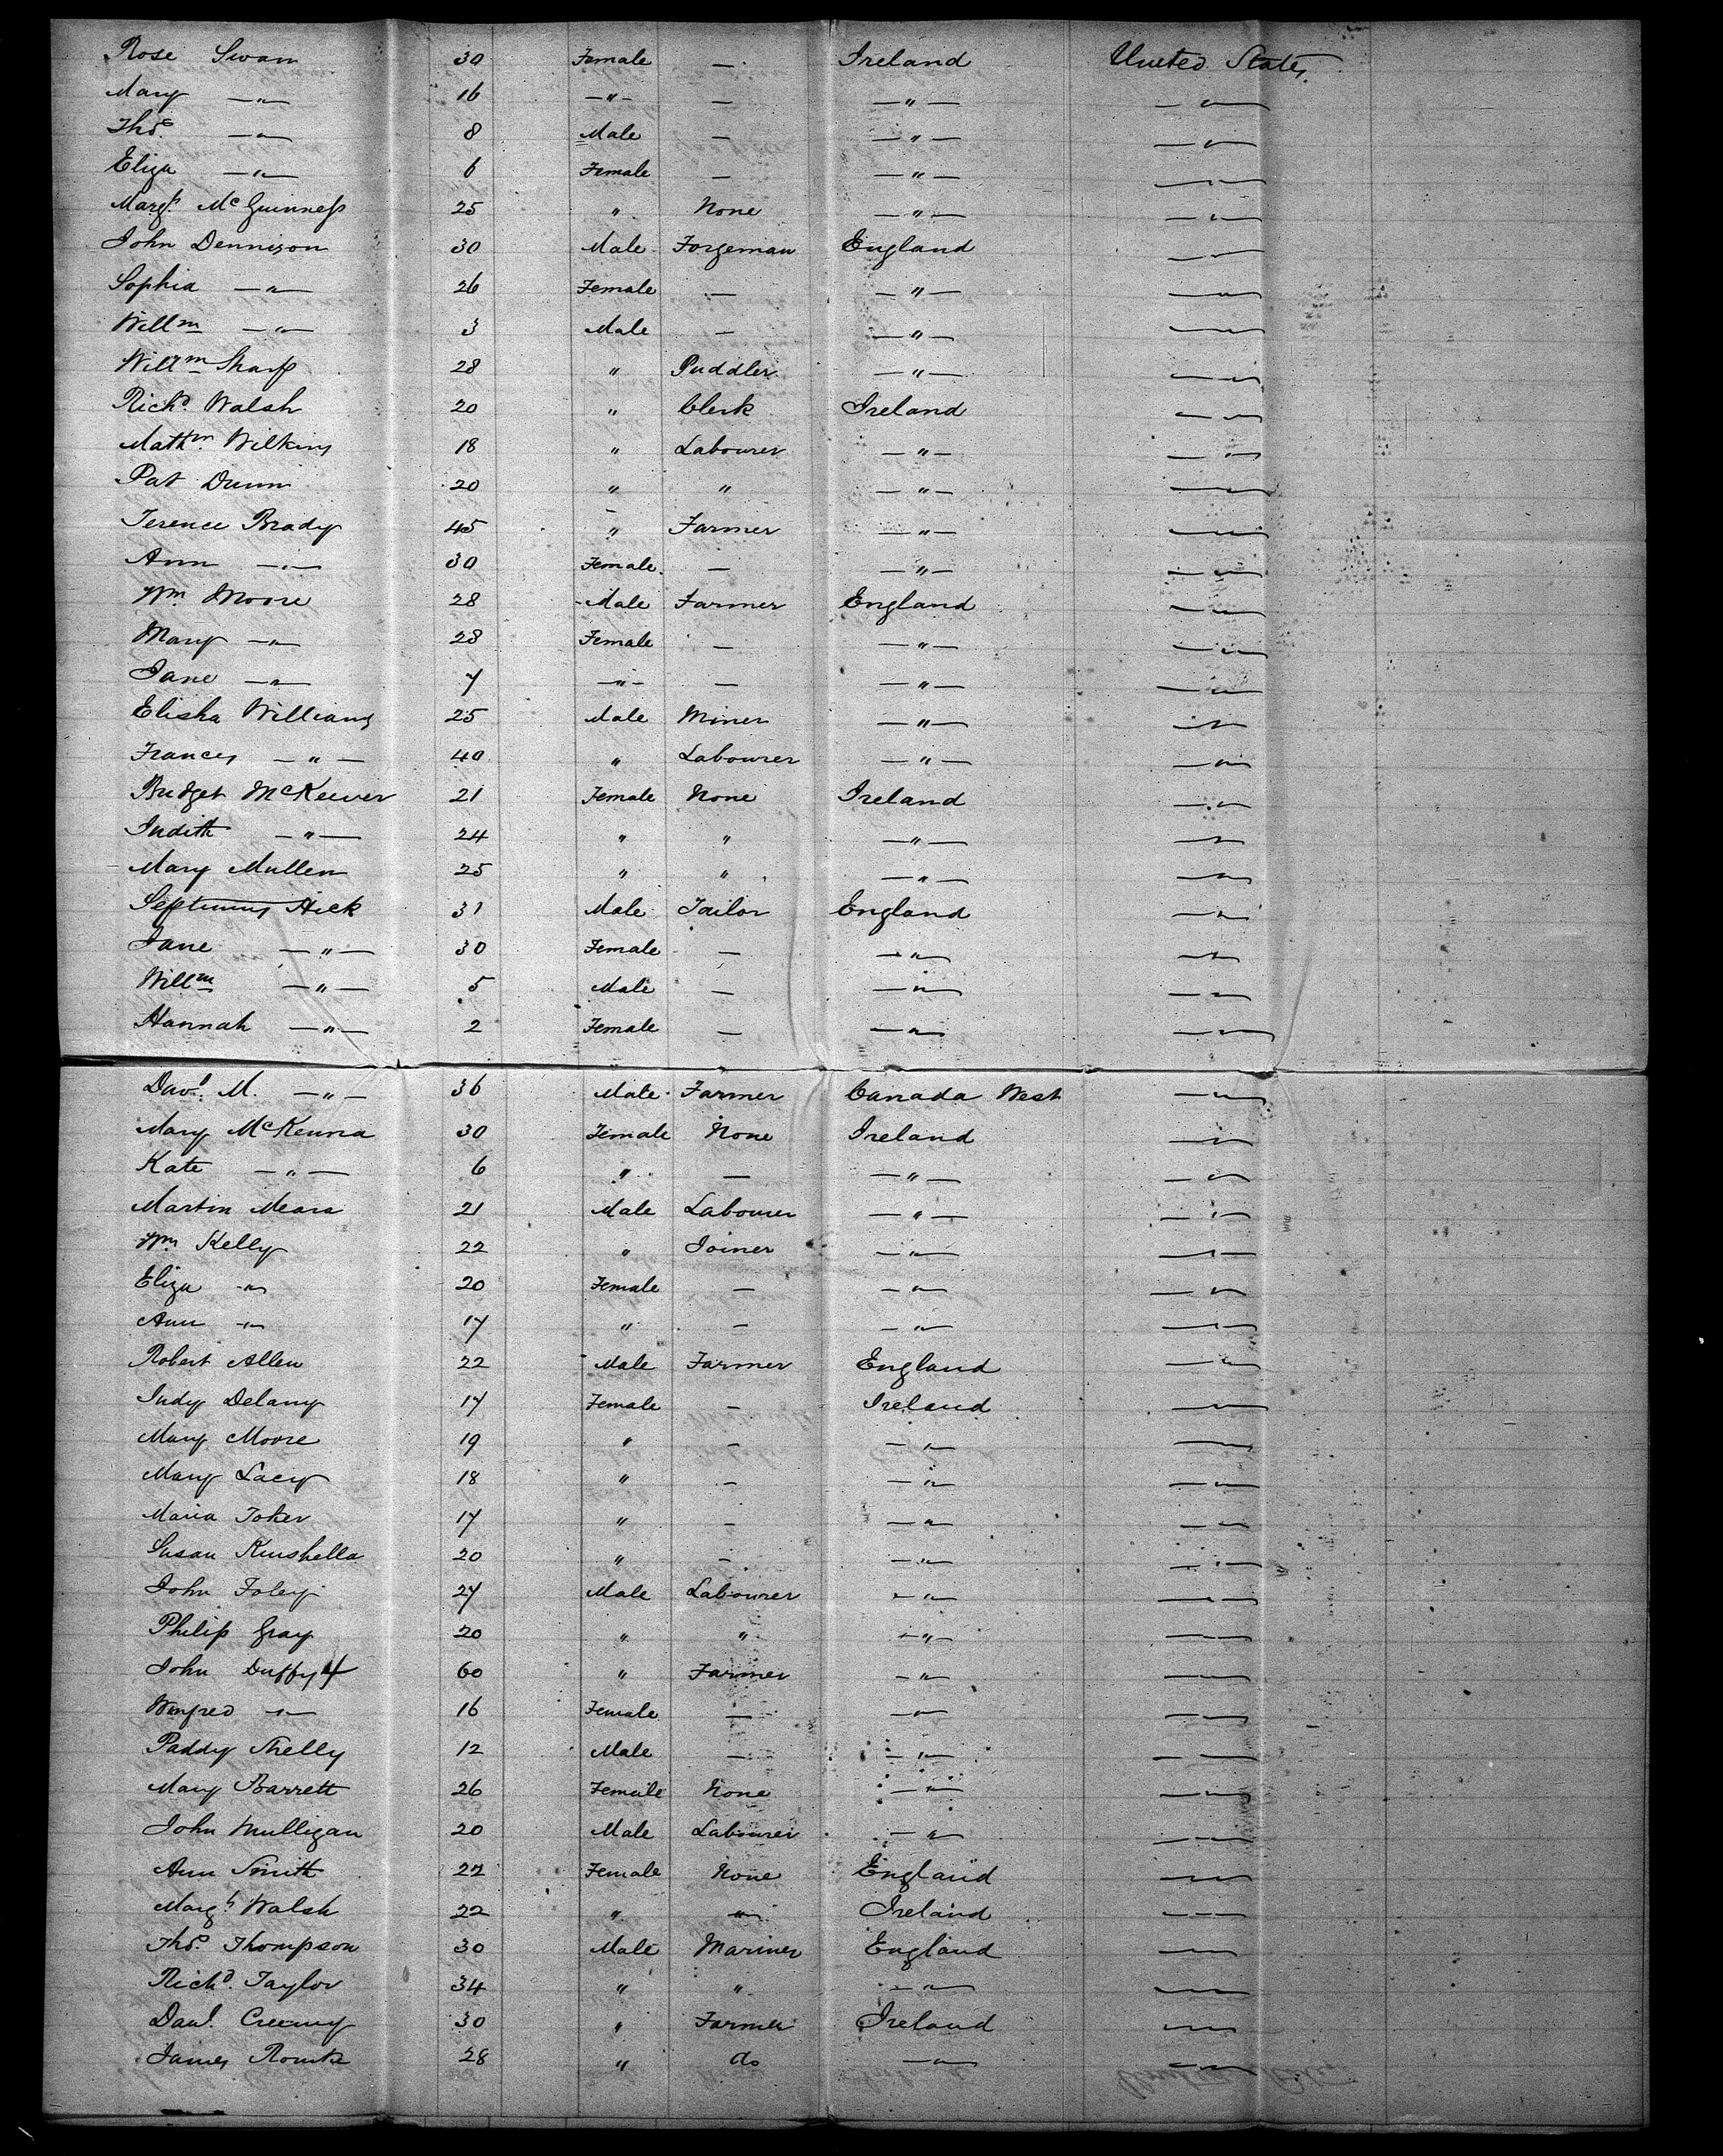 Rose Swan 30 Female — Ireland United States
Mary —〃— 16 —〃— — —〃— —〃—
Thos —〃— 8 Male — —〃— —〃—
Eliza —〃— 6 Female — —〃— —〃—
Margt. McGuinness 25 〃 None —〃— —〃—
John Dennison 30 Male Forgeman England —〃—
Sophia —〃— 26 Female — —〃— —〃—
Willm —〃— 3 Male — —〃— —〃—
Willm Sharp 28 〃 Puddler —〃— —〃—
Richd. Walsh 20 〃 Clerk Ireland —〃—
Mathw. Wilkins 18 〃 Labourer —〃— —〃—
Pat Dunn 20 〃 〃 —〃— —〃—
Terence Brady 45 〃 Farmer —〃— —〃—
Ann —〃— 30 Female — —〃— —〃—
Wm Moore 28 Male Farmer England —〃—
Mary —〃— 28 Female — —〃— —〃—
Jane —〃— 7 —〃— — —〃— —〃—
Elisha Williams 25 Male Miner —〃— —〃—
Frances —〃— 40 〃 Labourer —〃— —〃—
Bridget McKeever 21 Female None Ireland —〃—
Judith —〃— 24 〃 〃 —〃— —〃—
Mary Mullen 25 〃 〃 —〃— —〃—
Septimus Hick 31 Male Tailor England —〃—
Jane —〃— 30 Female — —〃— —〃—
Willm —〃— 5 Male — —〃— —〃—
Hannah —〃— 2 Female — —〃— —〃—
Davd. M. —〃— 36 Male Farmer Canada West —〃—
Mary McKenna 30 Female None Ireland —〃—
Kate —〃— 6 〃 — —〃— —〃—
Martin Meara 21 Male Labourer —〃— —〃—
Wm Kelly 22 〃 Joiner —〃— —〃—
Eliza —〃— 20 Female — —〃— —〃—
Ann —〃— 17 〃 — —〃— —〃—
Robert Allen 22 Male Farmer England —〃—
Judy Delany 17 Female — Ireland —〃—
Mary Moore 19 〃 — —〃— —〃—
Mary Lacy 18 〃 — —〃— —〃—
Maria Toker 17 〃 — —〃— —〃—
Susan Kinshella 20 〃 — —〃— —〃—
John Foley 27 Male Labourer —〃— —〃—
Philip Gray 20 〃 〃 —〃— —〃—
John Duffy 60 〃 Farmer —〃— —〃—
Winfred —〃— 16 Female — —〃— —〃—
Paddy Shelly 12 Male — —〃— —〃—
Mary Barrett 26 Female None —〃— —〃—
John Mulligan 20 Male Labourer —〃— —〃—
Ann Smith 22 Female None England —〃—
Margt. Walsh 22 〃 〃 Ireland —〃—
Thos. Thompson 30 Male Mariner England —〃—
Richd. Taylor 34 〃 〃 —〃— —〃—
Danl. Creeny 30 〃 Farmer Ireland —〃—
James Rourke 28 〃 do —〃— —〃—